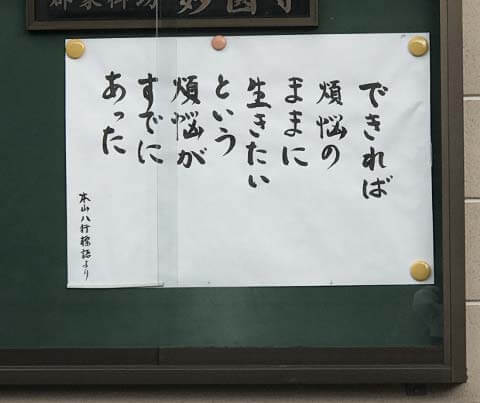 できれば
煩悩の
ままに
生きたい
という
煩悩が
すでに
あった
本山八行標語より